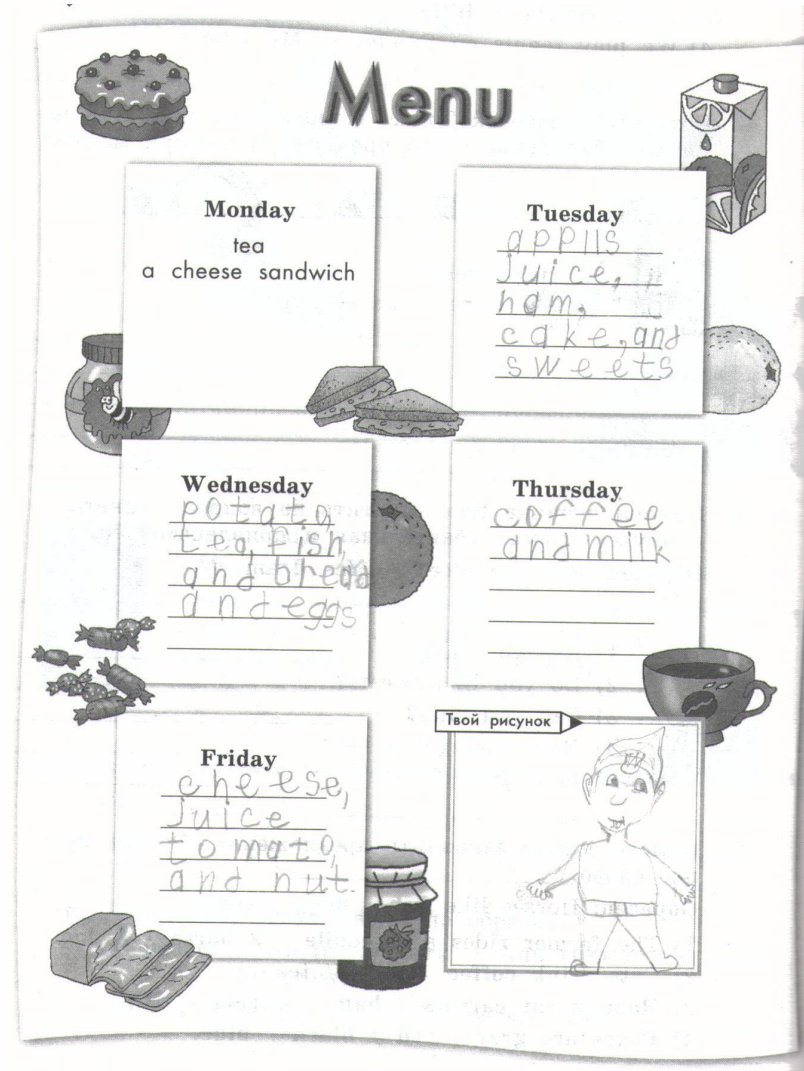 Menu
Monday
tea
a cheese sandwich
Tuesday
applls
juice,
ham,
cake, and
sweets
Wednesday
potato,
tea, fish,
and bread
and eggs
Thursday
coffee
and milk
Friday
cheese,
juice
tomato,
and nut.
Твой рисунок